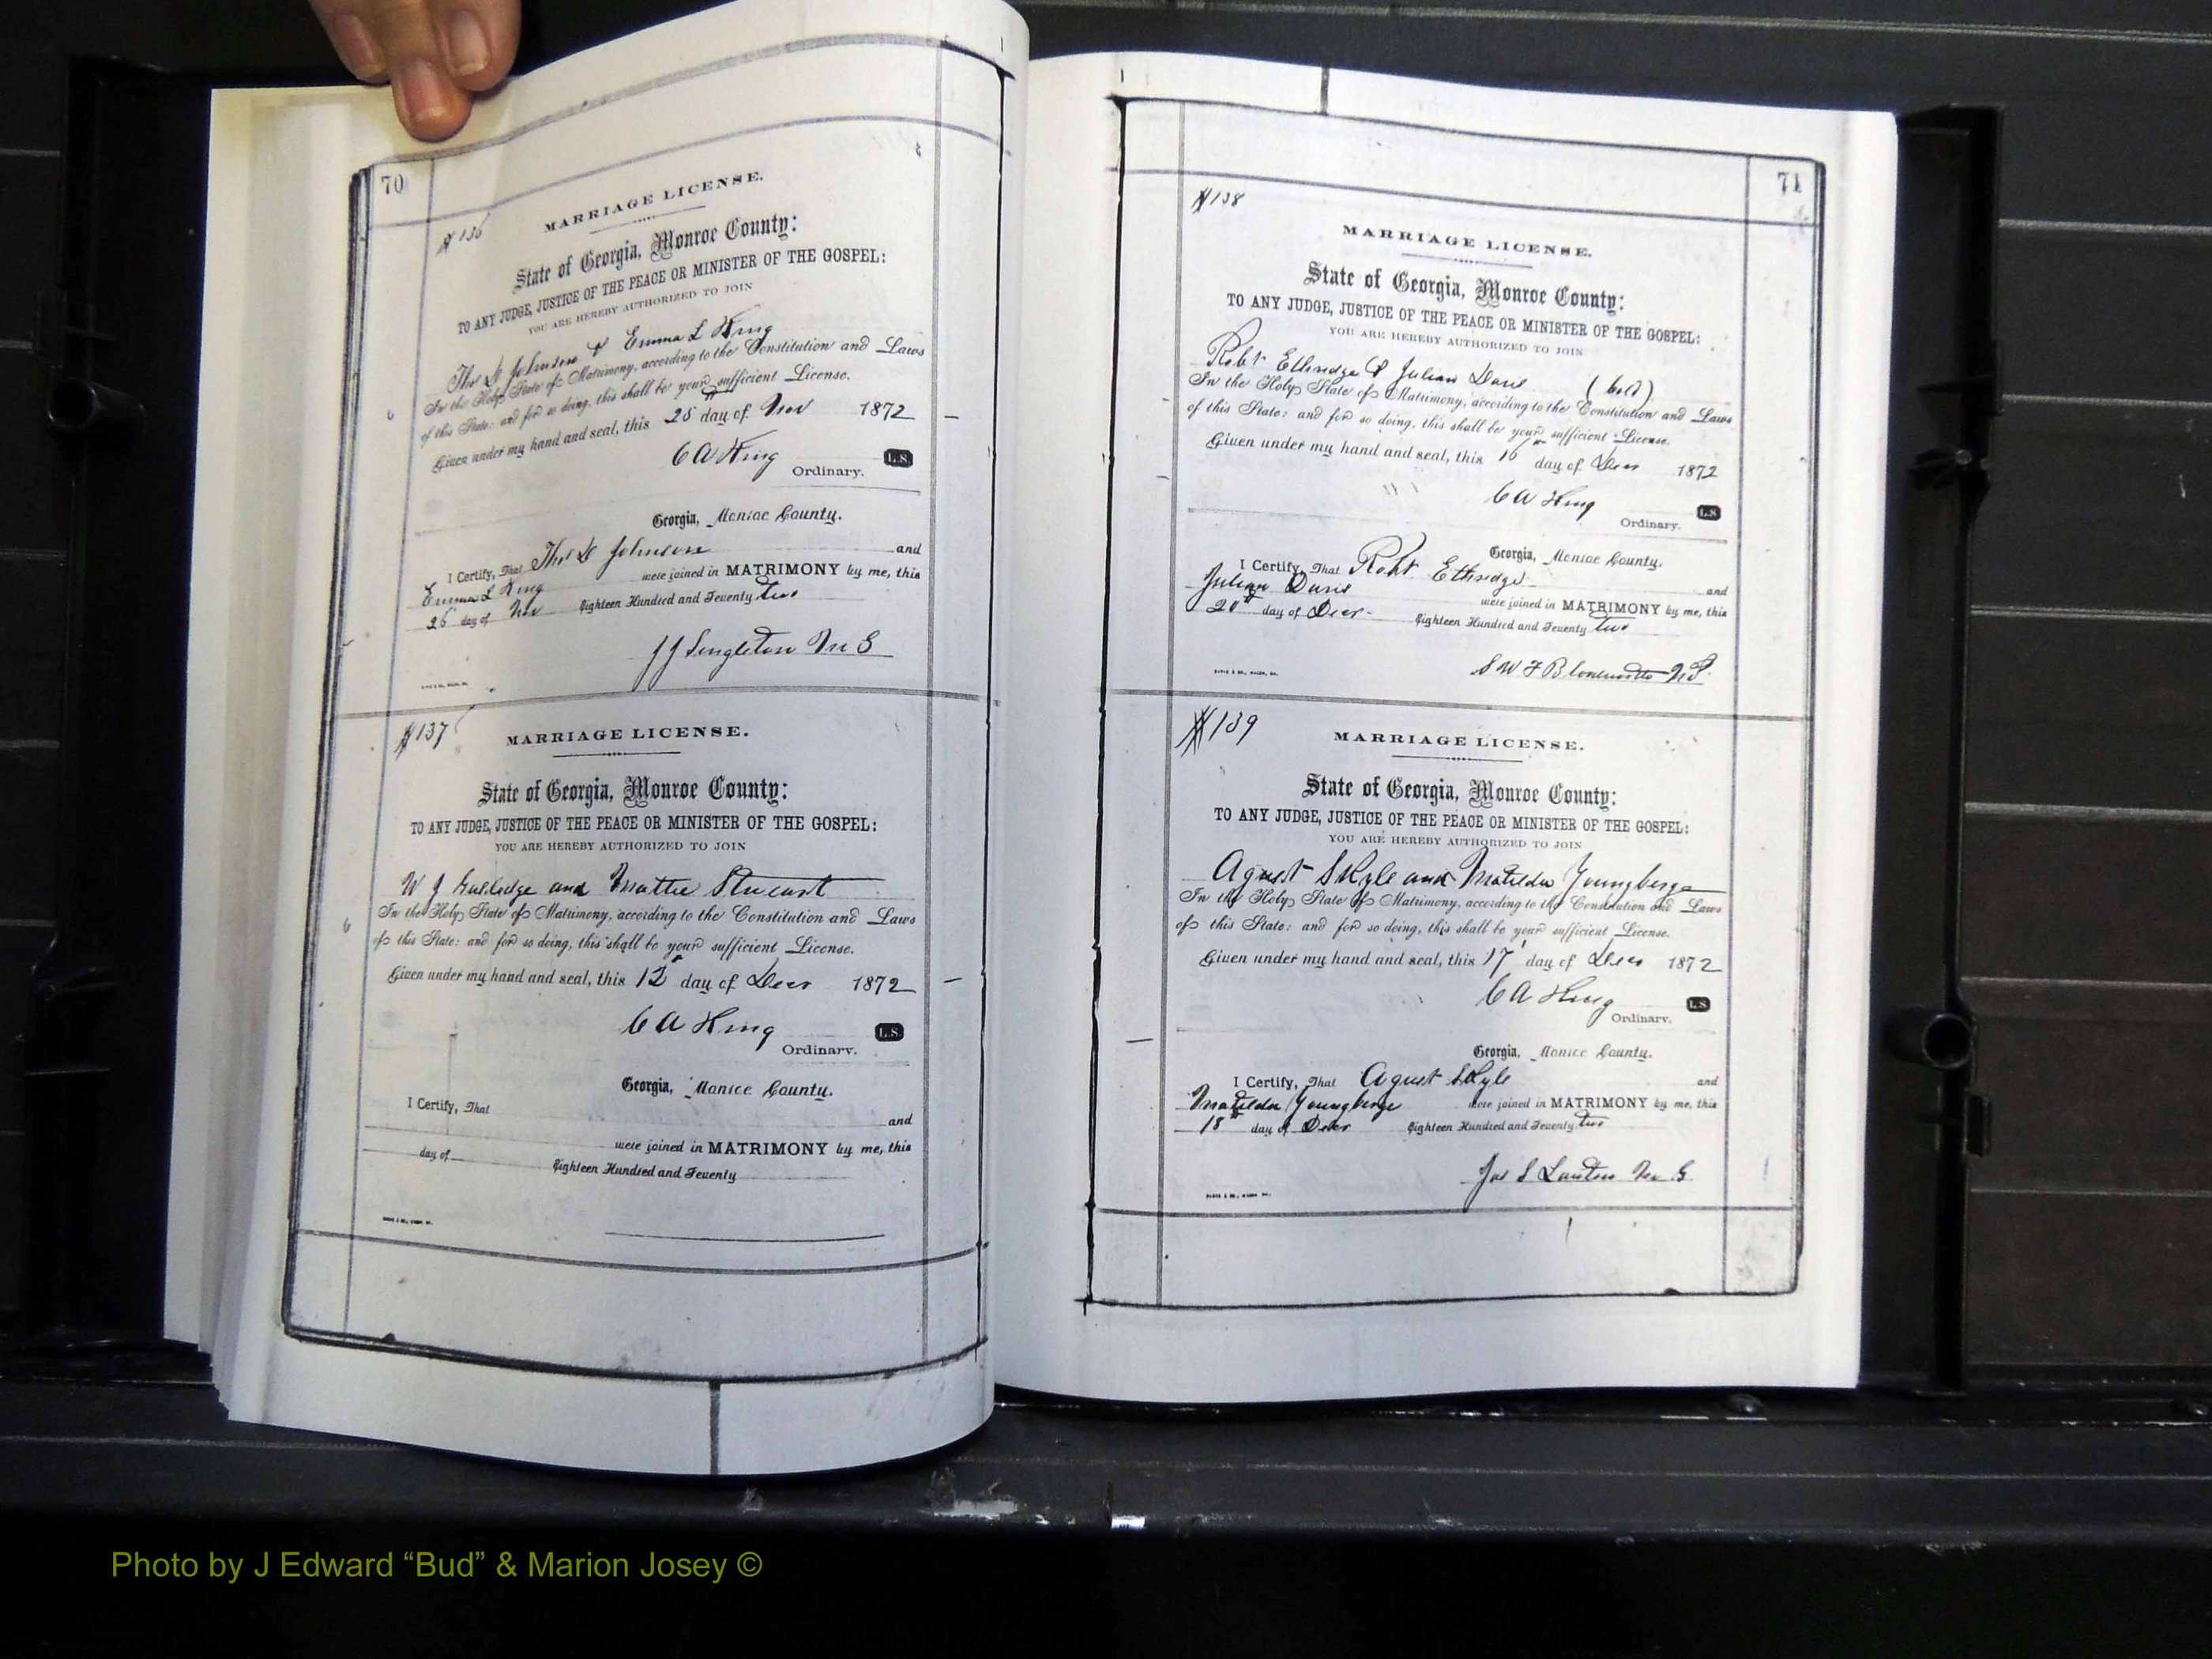 70
# 136
MARRIAGE LICENSE.
State of Georgia, Monroe County:
TO ANY JUDGE, JUSTICE OF THE PEACE OR MINISTER OF THE GOSPEL:
YOU ARE HEREBY AUTHORIZED TO JOIN
Johnson & Emma L King
In the Holy State of Matrimony, according to the Constitution and Laws
of this State: and for so doing, this shall be your sufficient License.
Given under my hand and seal, this 25 day of Nov 1872
C A King L.S.
Ordinary.
Georgia, Monroe County.
I Certify, That Johnson and
Emma L King were joined in MATRIMONY by me, this
26 day of Nov Eighteen Hundred and Seventy two
J J Singleton M G
# 137
MARRIAGE LICENSE.
State of Georgia, Monroe County:
TO ANY JUDGE, JUSTICE OF THE PEACE OR MINISTER OF THE GOSPEL:
YOU ARE HEREBY AUTHORIZED TO JOIN
W J and Mattie Stewart
In the Holy State of Matrimony, according to the Constitution and Laws
of this State: and for so doing, this shall be your sufficient License.
Given under my hand and seal, this day of Decr 1872
C A King L.S.
Ordinary.
Georgia, Monroe County.
I Certify, That
and
were joined in MATRIMONY by me, this
day of Eighteen Hundred and Seventy
71
# 138
MARRIAGE LICENSE.
State of Georgia, Monroe County:
TO ANY JUDGE, JUSTICE OF THE PEACE OR MINISTER OF THE GOSPEL:
YOU ARE HEREBY AUTHORIZED TO JOIN
Robt Ethridge & Julian Davis (cold)
In the Holy State of Matrimony, according to the Constitution and Laws
of this State: and for so doing, this shall be your sufficient License.
Given under my hand and seal, this 16 day of Decr 1872
C A King L.S.
Ordinary.
Georgia, Monroe County.
I Certify, That Robt Ethridge and
Julian Davis were joined in MATRIMONY by me, this
20th day of Decr Eighteen Hundred and Seventy two
S W F N P
# 139
MARRIAGE LICENSE.
State of Georgia, Monroe County:
TO ANY JUDGE, JUSTICE OF THE PEACE OR MINISTER OF THE GOSPEL:
YOU ARE HEREBY AUTHORIZED TO JOIN
Agust S Kyle and Matilda Youngberge
In the Holy State of Matrimony, according to the Constitution and Laws
of this State: and for so doing, this shall be your sufficient License.
Given under my hand and seal, this 17 day of Decr 1872
C A King L.S.
Ordinary.
Georgia, Monroe County.
I Certify, That Agust S Kyle and
Matilda Youngberge were joined in MATRIMONY by me, this
18th day of Decr Eighteen Hundred and Seventy two
Jas S Lawton M G
Photo by J Edward “Bud” & Marion Josey ©